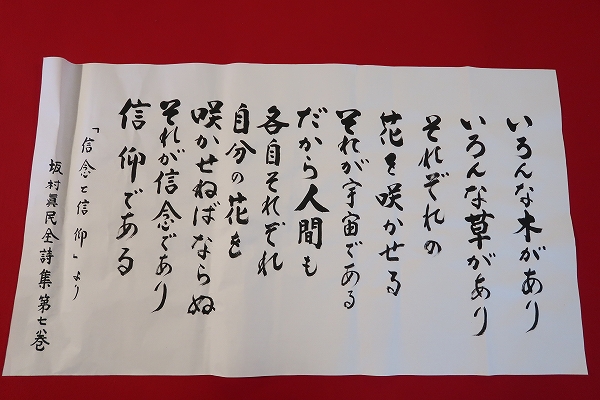 いろんな木があり
いろんな草があり
それぞれの
花を咲かせる
それが宇宙である
だから人間も
各自それぞれ
自分の花を
咲かせねばならぬ
それが信念であり
信仰である
「信念と信仰」より
坂村眞民全詩集第七巻